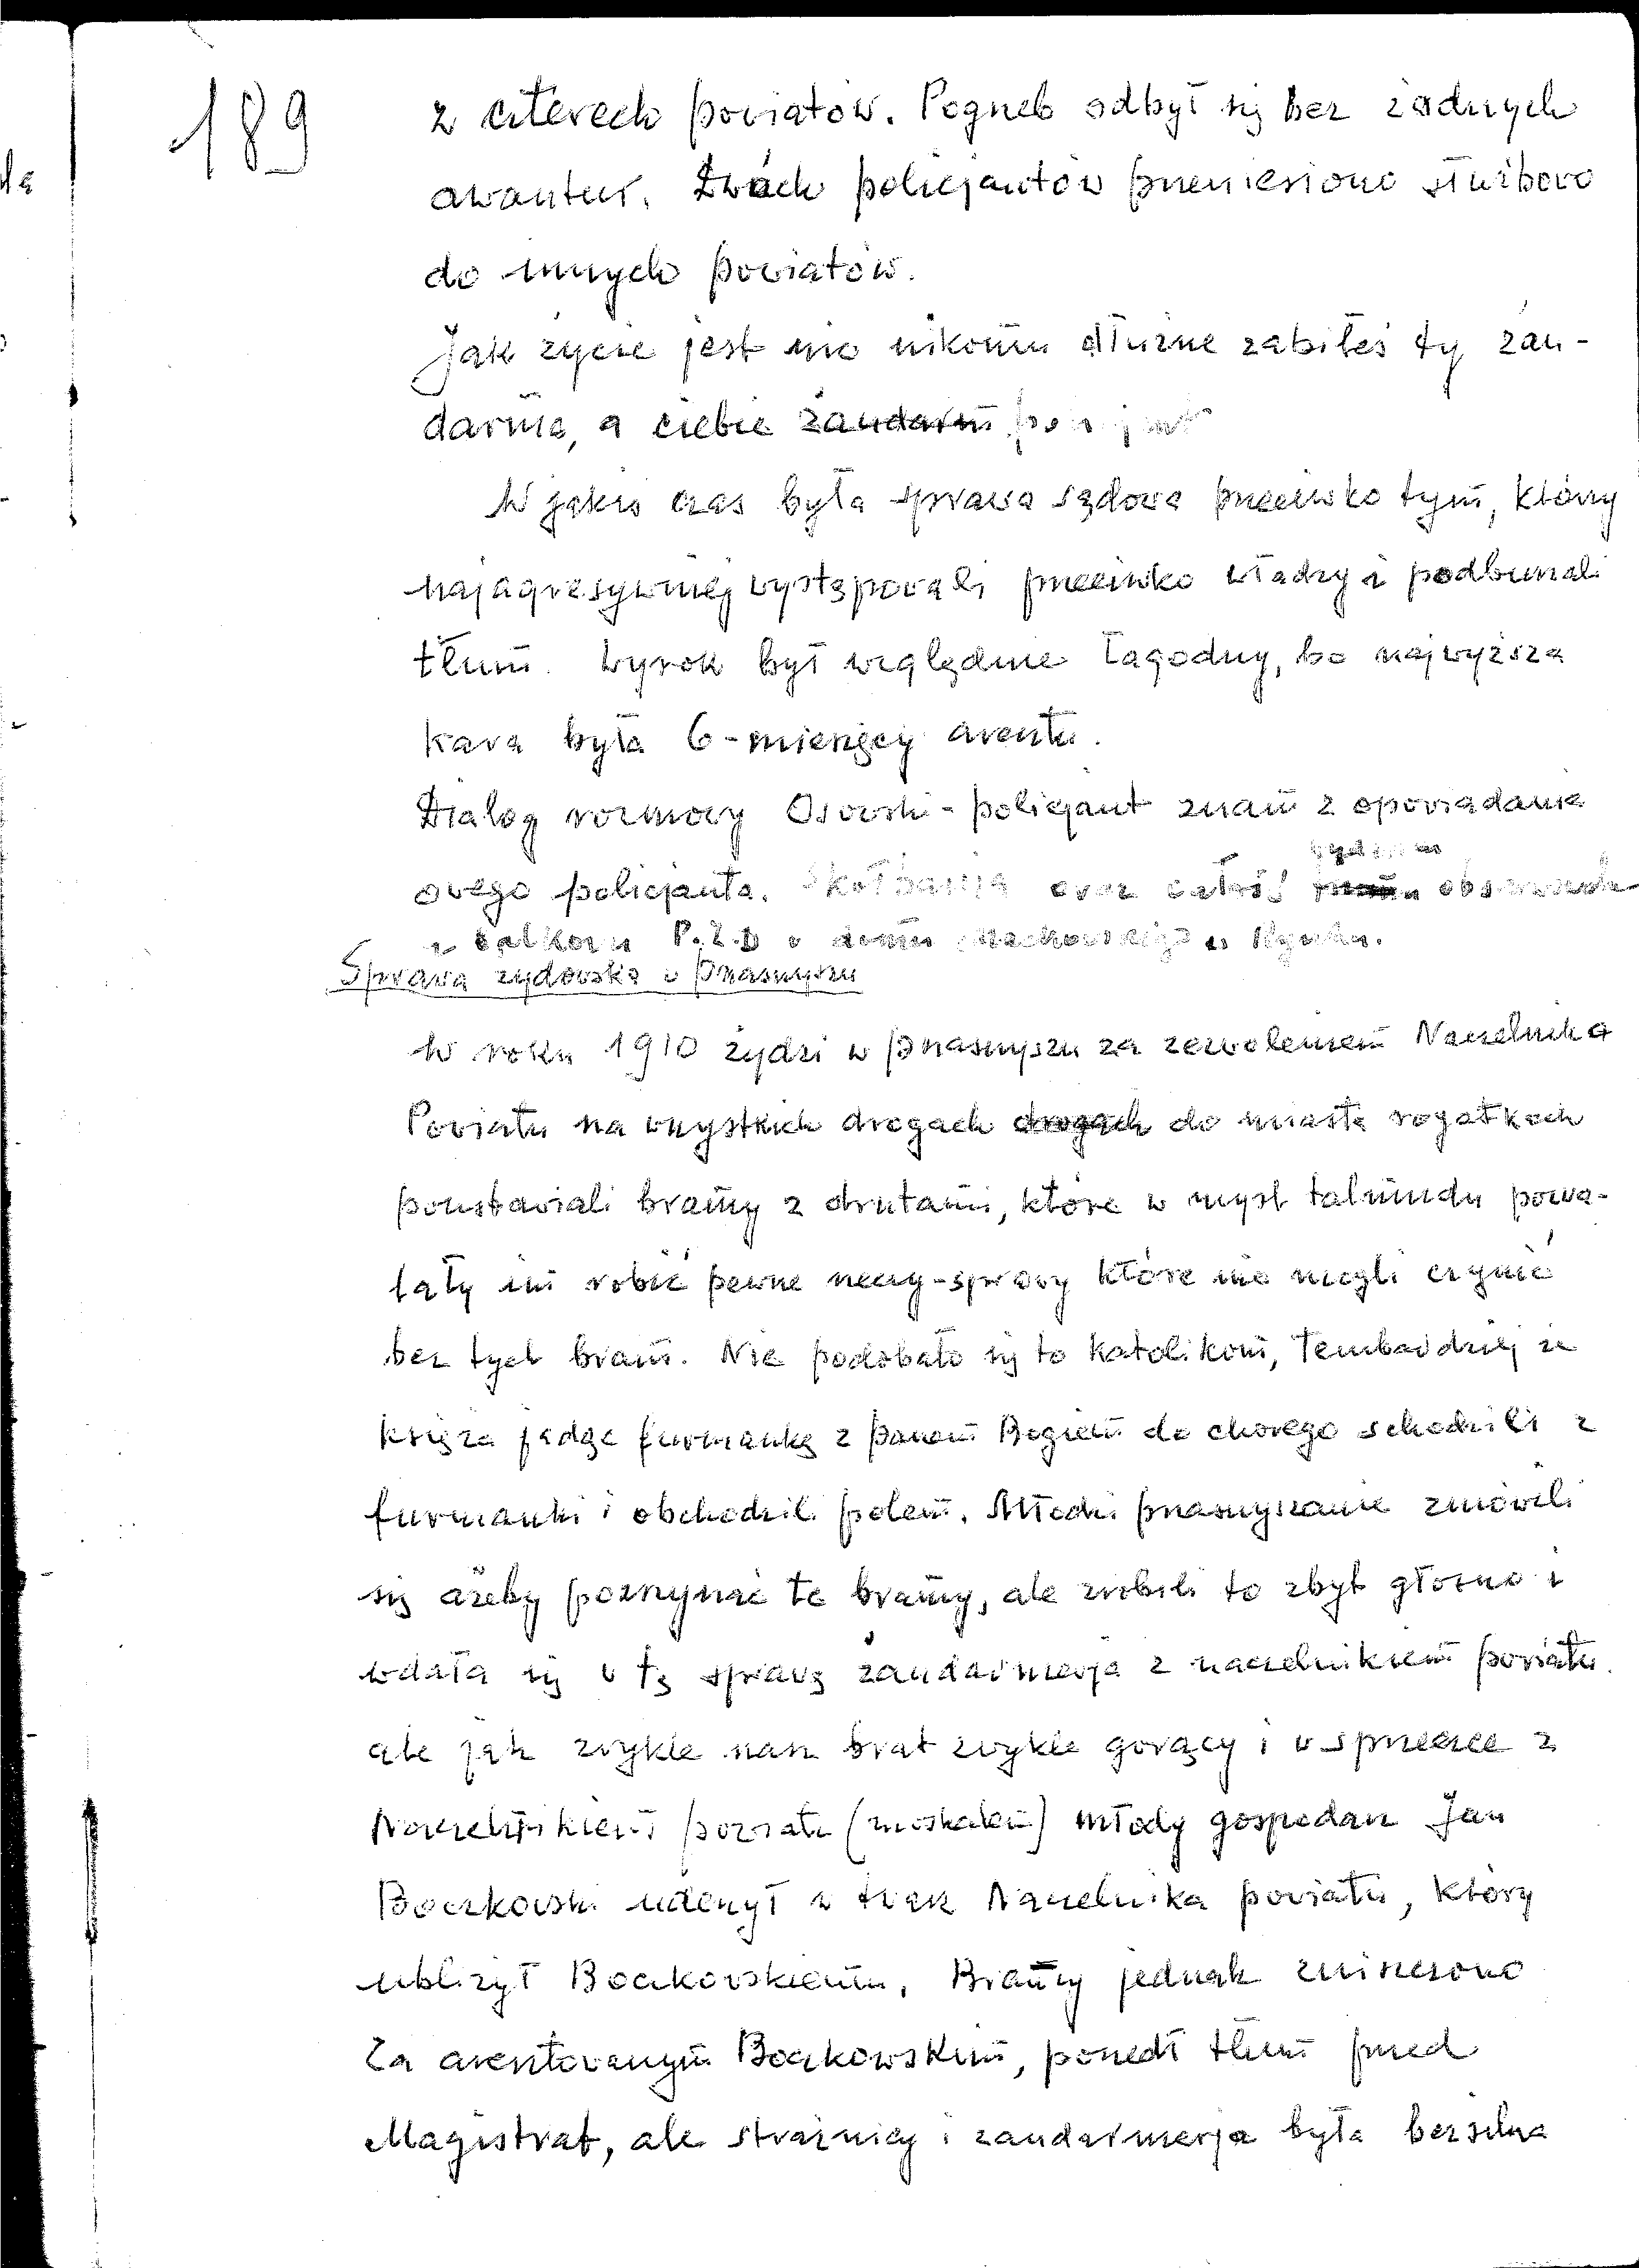 189
z czterech powiatów. Pogrzeb odbył się bez żadnych
awantur. Dwóch policjantów przeniesiono służbowo
do innych powiatów.
Jak życie jest nie nikomu dłużne zabiłeś ty żan-
darma, a ciebie żandarm policjant
W jakiś czas była sprawa sądowa przeciwko tym, którzy
najagresywniej występowali przeciwko władzy i podburzali
tłum. Wyrok był względnie łagodny, bo najwyższa
kara była 6-miesięcy aresztu.
Dialog rozmowy Osowski - policjant znam z opowiadania
owego policjanta, oraz całość
z balkonu P.Z.P w domu w Rynku.
Sprawa żydowska w Przasnyszu
W roku 1910 żydzi w Przasnyszu za zezwoleniem Naczelnika
Powiatu na wszystkich drogach drogach do miasta rogatkach
poustawiali bramy z drutami, które w myśl talmudu pozwa-
lały im robić pewne rzeczy-sprawy które nie mogli czynić
bez tych bram. Nie podobało się to katolikom, Tembardziej że
księża jadąc furmanką z Panem Bogiem do chorego schodzili z
furmanki i obchodzili polem. Młodzi przasnyszanie zmówili
się ażeby pozrzynać te bramy, ale zrobili to zbyt głośno i
wdała się w tę sprawę żandarmerja z naczelnikiem powiatu.
ale jak zwykle nasz brat zwykle gorący i w sprzeczce z
Naczelnikiem powiatu (moskalem) młody gospodarz Jan
Boczkowski uderzył w twarz Naczelnika powiatu, który
ubliżył Boczkowskiemu. Bramy jednak zniszczono
Za aresztowanym Boczkowskim, poszedł tłum przed
Magistrat, ale strażnicy i żandarmerja była bezsilna